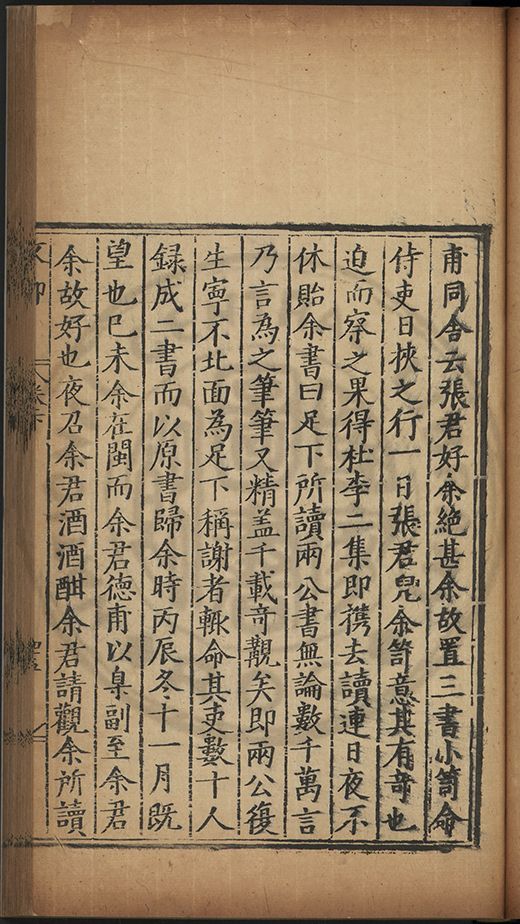 甫同舍云張君好余絶甚余故置三書小笥命
侍吏日挾之行一日張君皃余笥意其有竒也
迫而察之果得杜李二集即㩗去讀連日夜不
休貽余書曰足下所讀兩公書無論數千萬言
乃言為之筆筆又精盖千載竒觀矣即兩公復
生寧不北面為足下稱謝者輙命其吏數十人
録成二書而以原書歸余時丙辰冬十一月旣
望也巳未余在閩而余君德甫以臬副至余君
余故好也夜召余君酒酒酣余君請觀余所讀